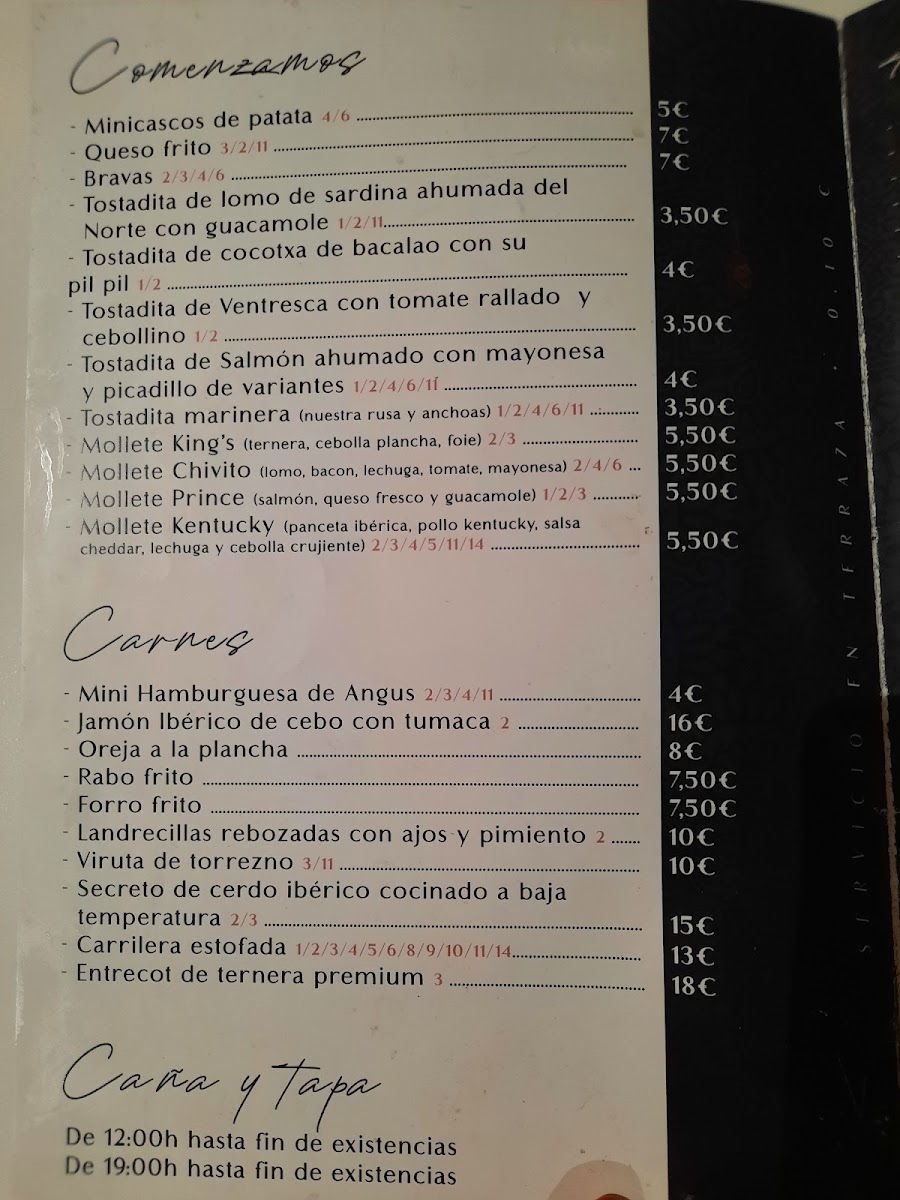 Comenzamos
- Minicascos de patata 4/6 5€
- Queso frito 3/2/11 7€
- Bravas 2/3/4/6 7€
- Tostadita de lomo de sardina ahumada del
Norte con guacamole 1/2/11 3,50€
- Tostadita de cocotxa de bacalao con su
pil pil 1/2 4€
- Tostadita de Ventresca con tomate rallado y
cebollino 1/2 3,50€
- Tostadita de Salmón ahumado con mayonesa
y picadillo de variantes 1/2/4/6/11 4€
- Tostadita marinera (nuestra rusa y anchoas) 1/2/4/6/11 3,50€
- Mollete King's (ternera, cebolla plancha, foie) 2/3 5,50€
- Mollete Chivito (lomo, bacon, lechuga, tomate, mayonesa) 2/4/6 5,50€
- Mollete Prince (salmón, queso fresco y guacamole) 1/2/3 5,50€
- Mollete Kentucky (panceta ibérica, pollo kentucky, salsa
cheddar, lechuga y cebolla crujiente) 2/3/4/5/11/14 5,50€
Carnes
- Mini Hamburguesa de Angus 2/3/4/11 4€
- Jamón Ibérico de cebo con tumaca 2 16€
- Oreja a la plancha 8€
- Rabo frito 7,50€
- Forro frito 7,50€
- Landrecillas rebozadas con ajos y pimiento 2 10€
- Viruta de torrezno 3/11 10€
- Secreto de cerdo ibérico cocinado a baja
temperatura 2/3 15€
- Carrilera estofada 1/2/3/4/5/6/8/9/10/11/14 13€
- Entrecot de ternera premium 3 18€
Caña y Tapa
De 12:00h hasta fin de existencias
De 19:00h hasta fin de existencias
SERVICIO EN TERRAZA . 0,10 €